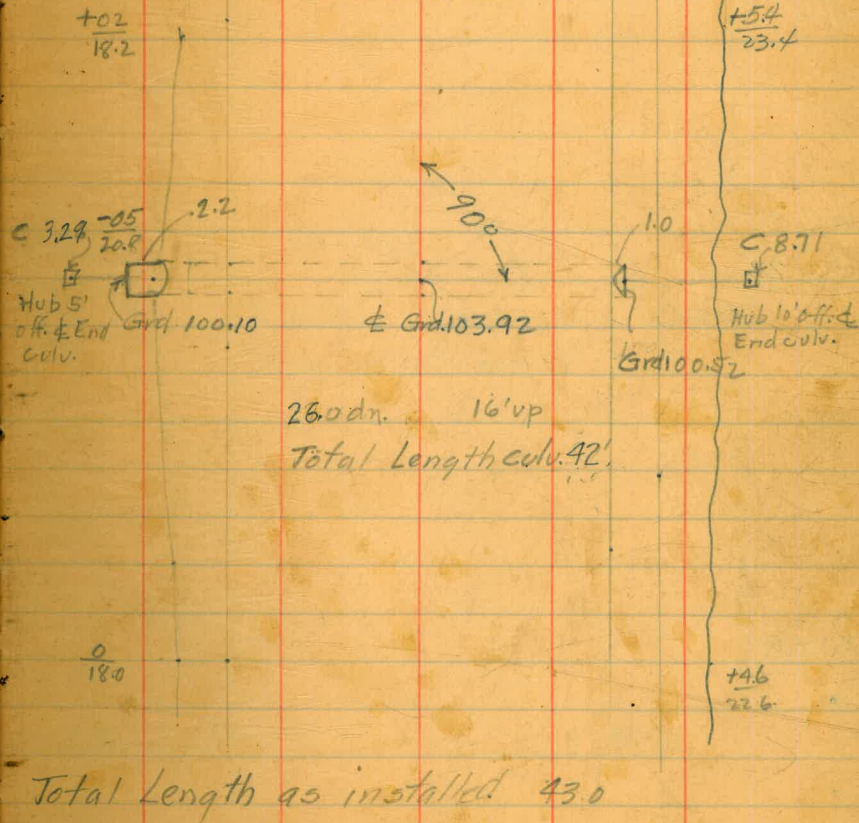 +02
18.2
+5.4
23.4
90°
C 3.29
-05
20.8
2.2
1.0
C 8.71
Hub 5'
off. ℄ End
Culv.
Grd 100.10
℄ Grd. 103.92
Grd 100.52
Hub 10' off. ℄
End culv.
26.0 dn. 16' up
Total Length culv. 42'.
0
18.0
+4.6
22.6
Total Length as installed 43.0